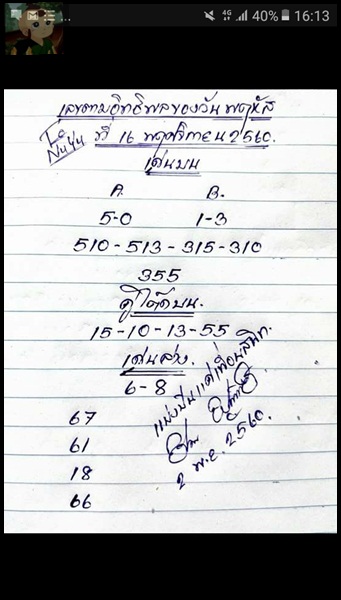 4G 40% 16:13
เลขตามอิทธิพลของวัน พฤหัส
ที่ 16 พฤศจิกายน 2560.
เด่นบน
A. B.
5-0 1-3
510 - 513 - 315 - 310
355
คู่โต๊ดบน.
15-10-13-55
เด่นล่าง
6-8
67
61
18
66
แบ่งปันแด่เพื่อนสนิท.
2 พ.ย. 2560.